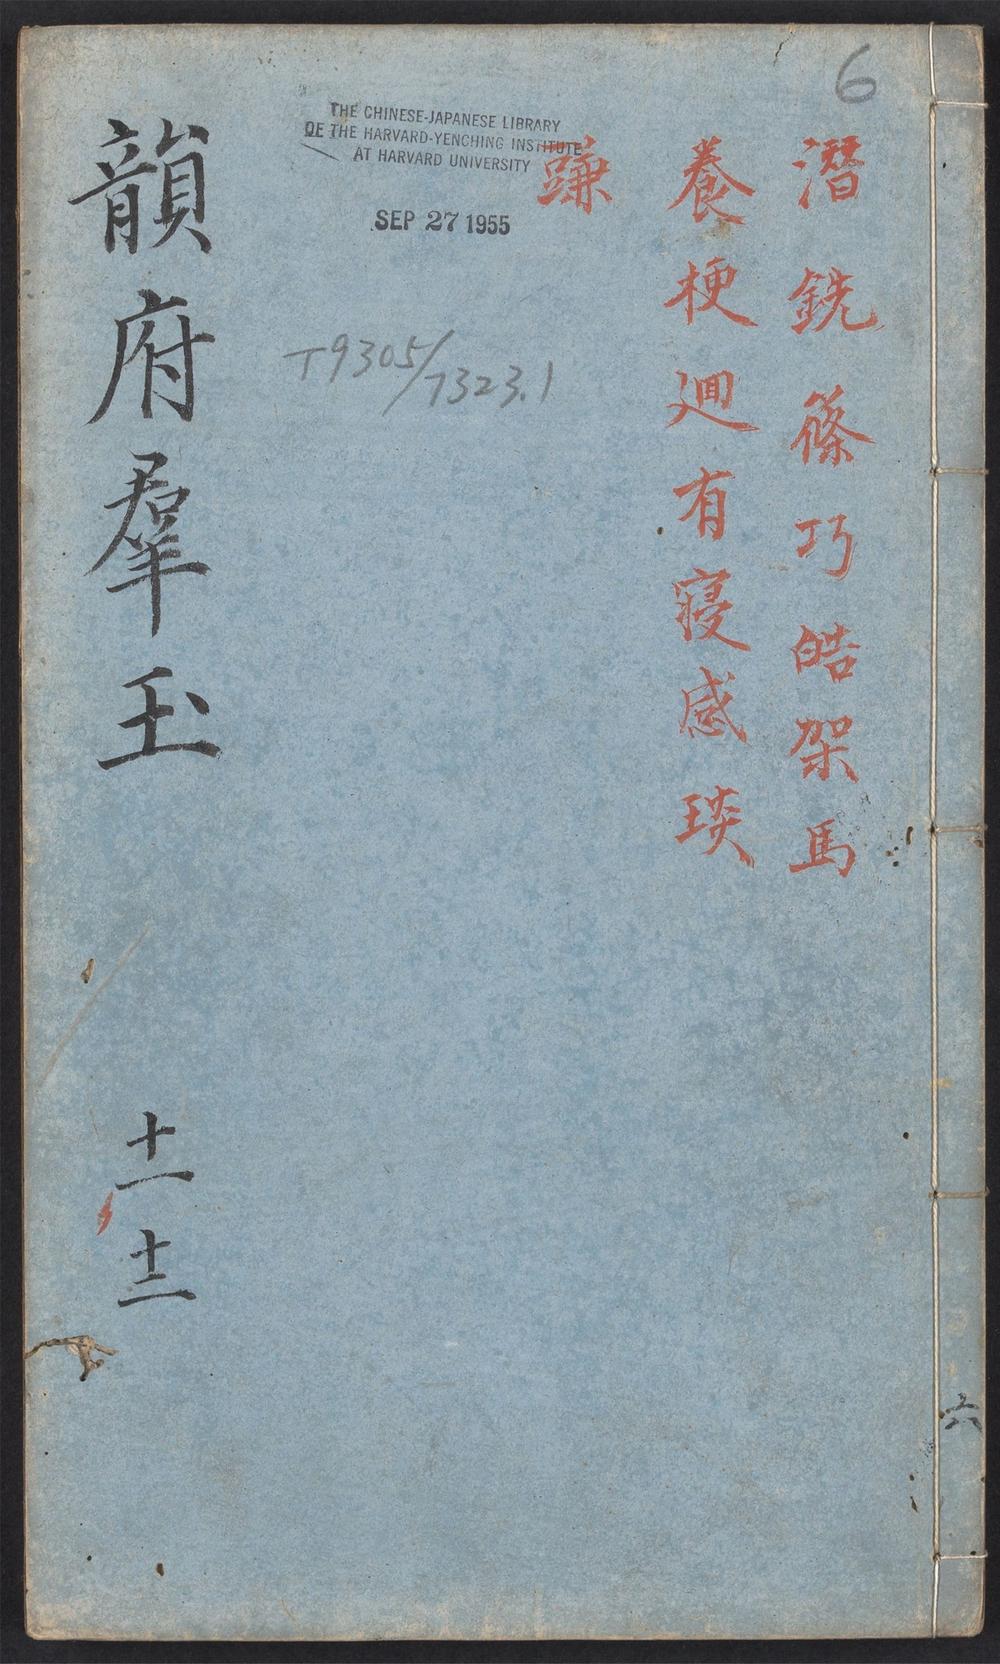 6
潛銑篠巧皓架馬
養梗迥有寑感琰
豏
THE CHINESE-JAPANESE LIBRARY
OF THE HARVARD-YENCHING INSTITUTE
AT HARVARD UNIVERSITY
SEP 27 1955
T9305/7323.1
韻府羣玉
十一
十二
六